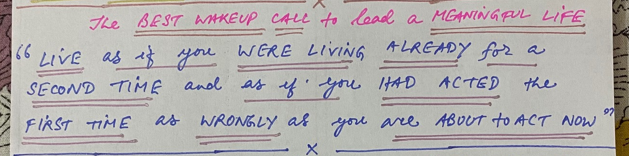 The BEST WAKEUP CALL to lead a MEANINGFUL LIFE
"LIVE as if you WERE LIVING ALREADY for a
SECOND TIME and as if you HAD ACTED the
FIRST TIME as WRONGLY as you are ABOUT to ACT NOW"